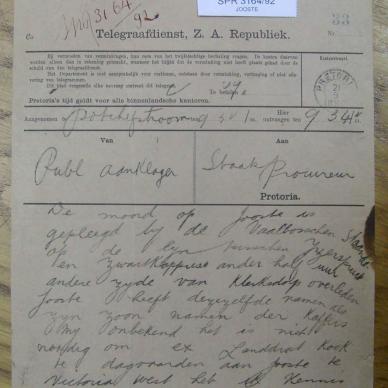 SPR 3164/92
JOOSTE
Spr 3164
92
33
Co
Telegraafdienst, Z. A. Republiek.
No.
Bij verzenden van verminkingen, kan van het twijfelachtige herhaling gevraagd worden. De kosten daarvoor
worden alleen dan in rekening gebracht, wanneer het blijkt dat de verminking niet heeft plaats gehad door de
schuld van den telegraafdienst.
Het Departement is niet aansprakelijk voor verliezen, ontstaan door verminking, vertraging of niet aflevering van telegrammen.
Dit blad vergezelle elke navraag omtrent dit telegram
Te betalen
Kantoorstempel.
PRETORI
21
Pretoria's tijd geldt voor alle binnenlandsche kantoren.
Aangenomen Potchefstroom 9
Hier ontvangen ten 9
Van
Aan
Publ Aanklager
Staats Procureur
Pretoria.
De moord op Jooste is
gepleegd by de Vaalboschen Stands
op de lyn tusschen Yzerspruit
en Zwartkoppies ander half uur
andere zyde van Klerksdorp overleden
Jooste heeft dezelfde namen als
zyn zoon namen der kaffirs
my onbekend het is niet
noodig om ex Landdrost Kock
te dagvaarden aan Jooste te
Victoria West heb ik kennis